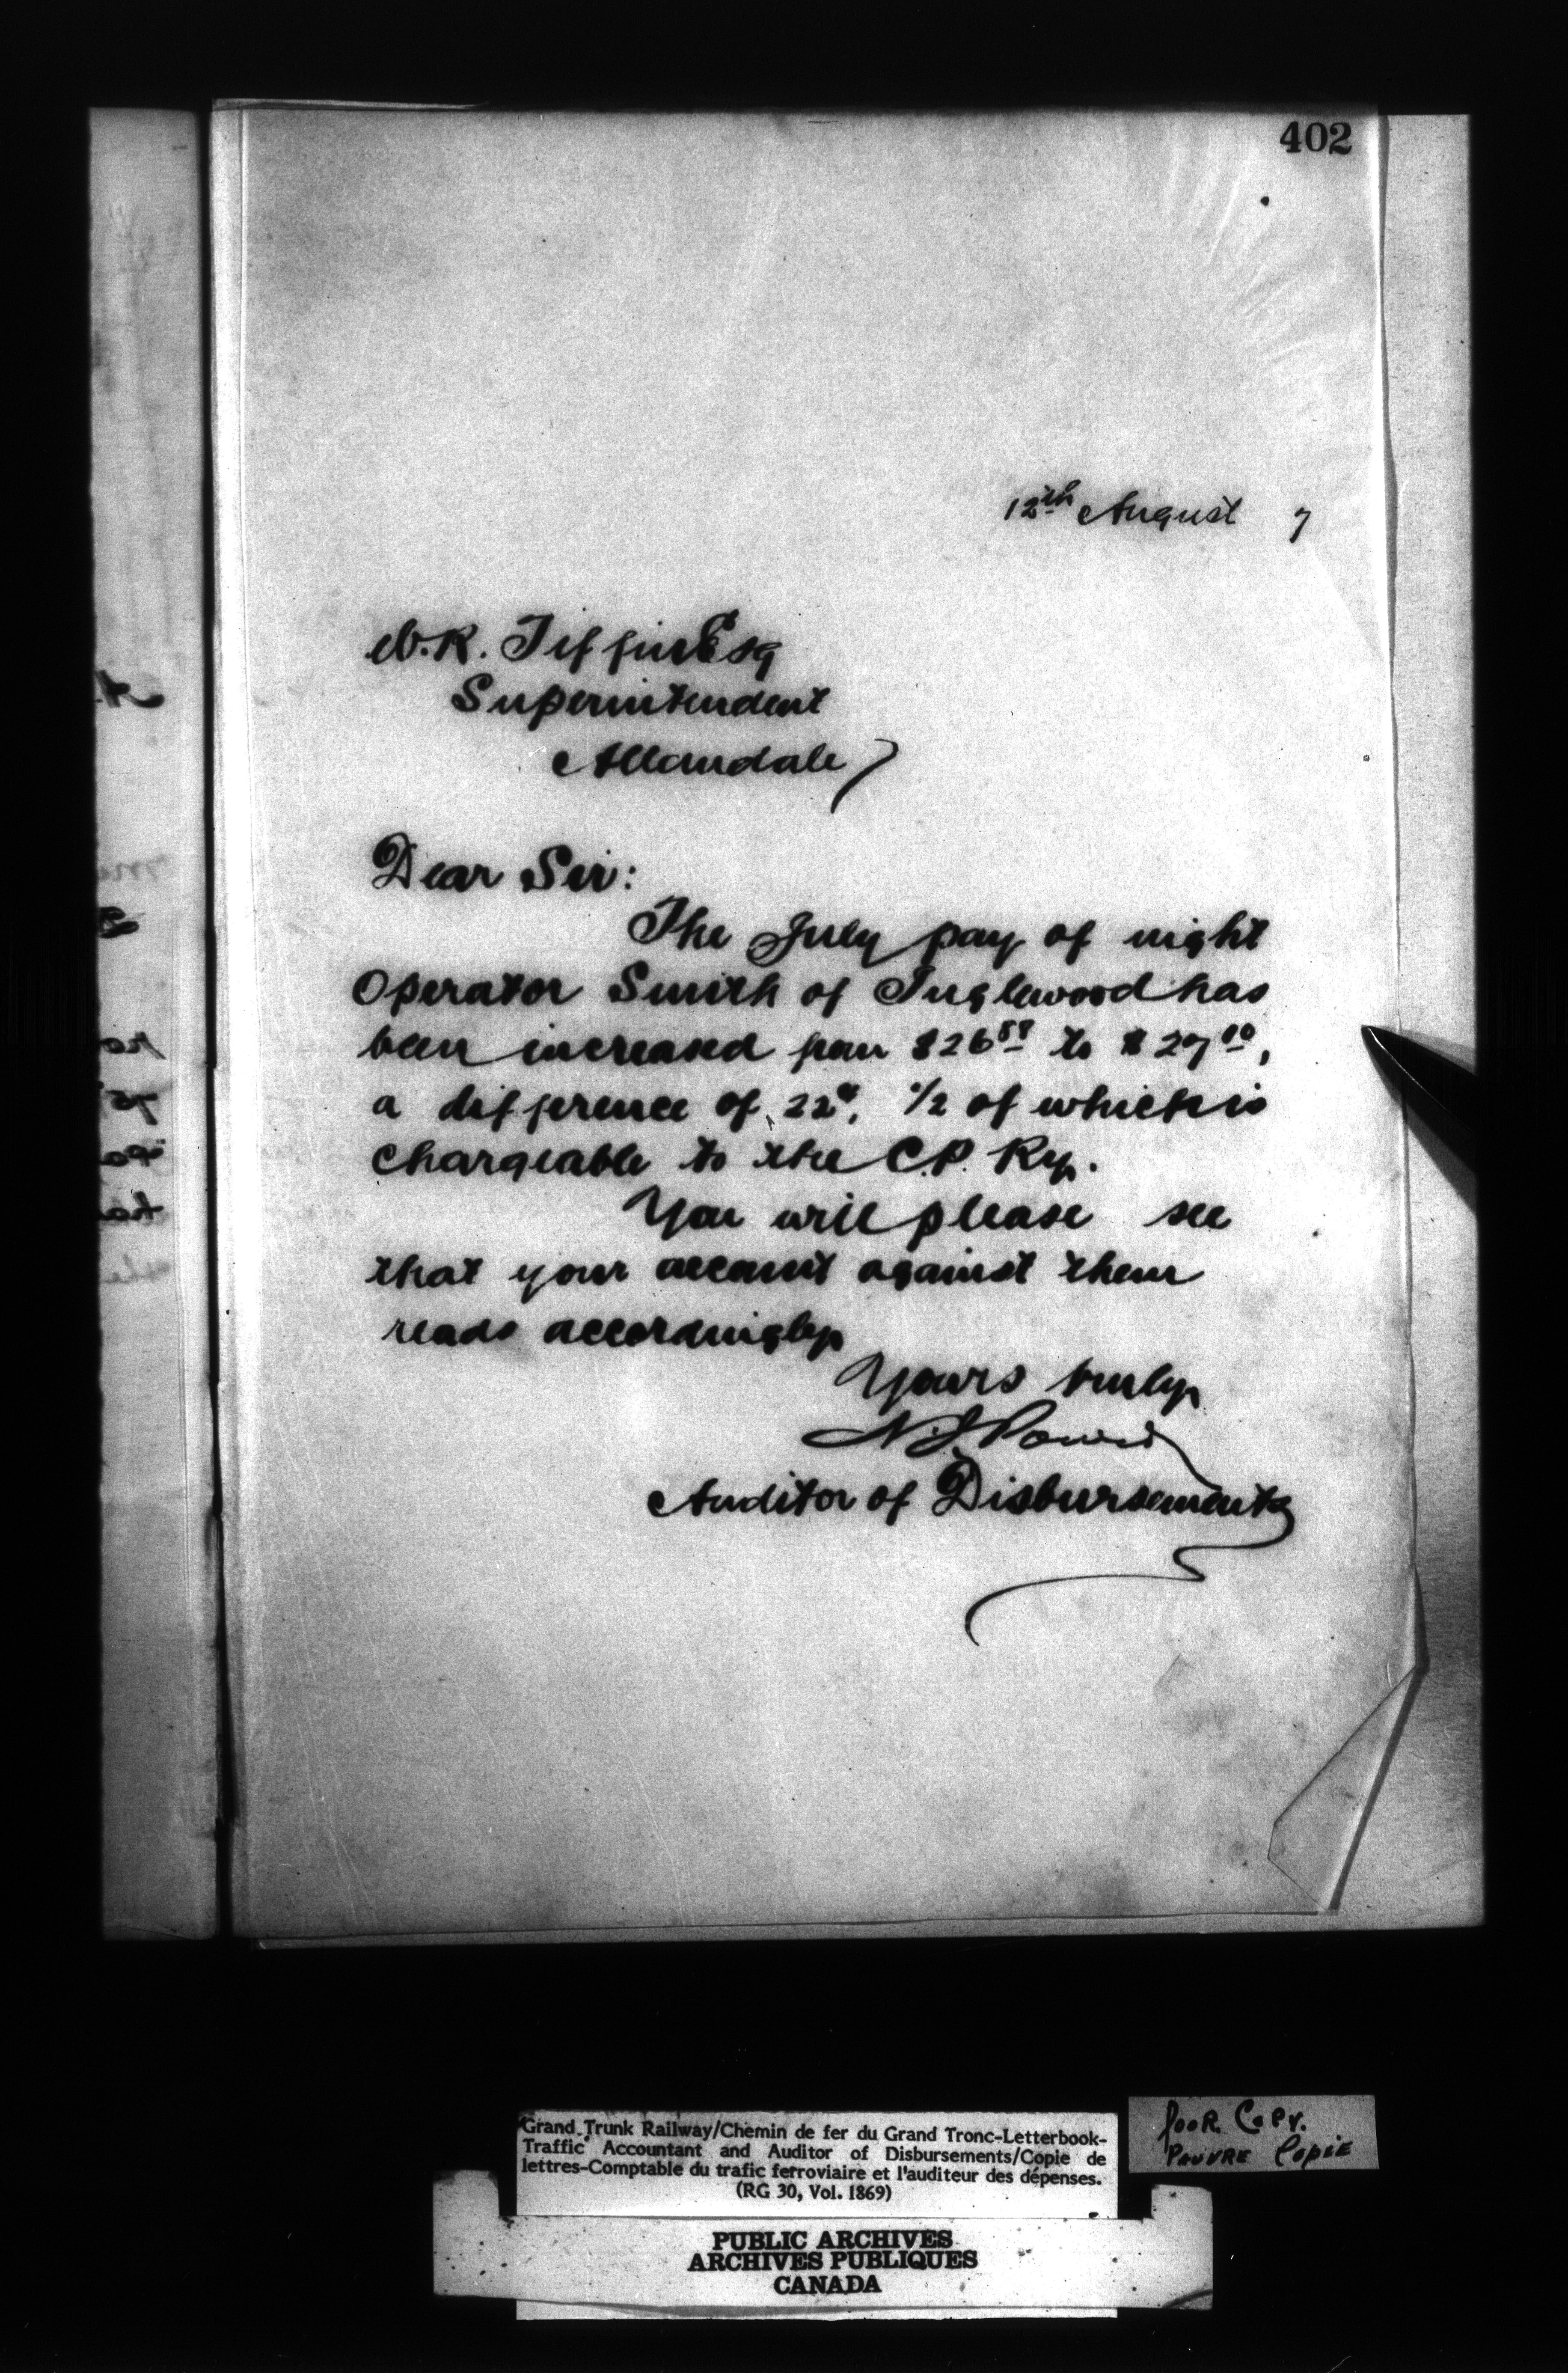 402
12th August 7
W.R. Tiffin Esq
Superintendent
Allandale
Dear Sir:
The July pay of night
Operator Smith of Inglewood has
been increased from $26 88 to $27 10,
a difference of 22¢, 1/2 of which is
chargeable to the C.P. Ry.
You will please see
that your account against them
reads accordingly
Yours truly
N J Power
Auditor of Disbursements
Grand Trunk Railway/Chemin de fer du Grand Tronc-Letterbook-
Traffic Accountant and Auditor of Disbursements/Copie de
lettres-Comptable du trafic ferroviaire et l'auditeur des dépenses.
(RG 30, Vol. 1869)
POOR COPY.
PAUVRE COPIE
PUBLIC ARCHIVES
ARCHIVES PUBLIQUES
CANADA